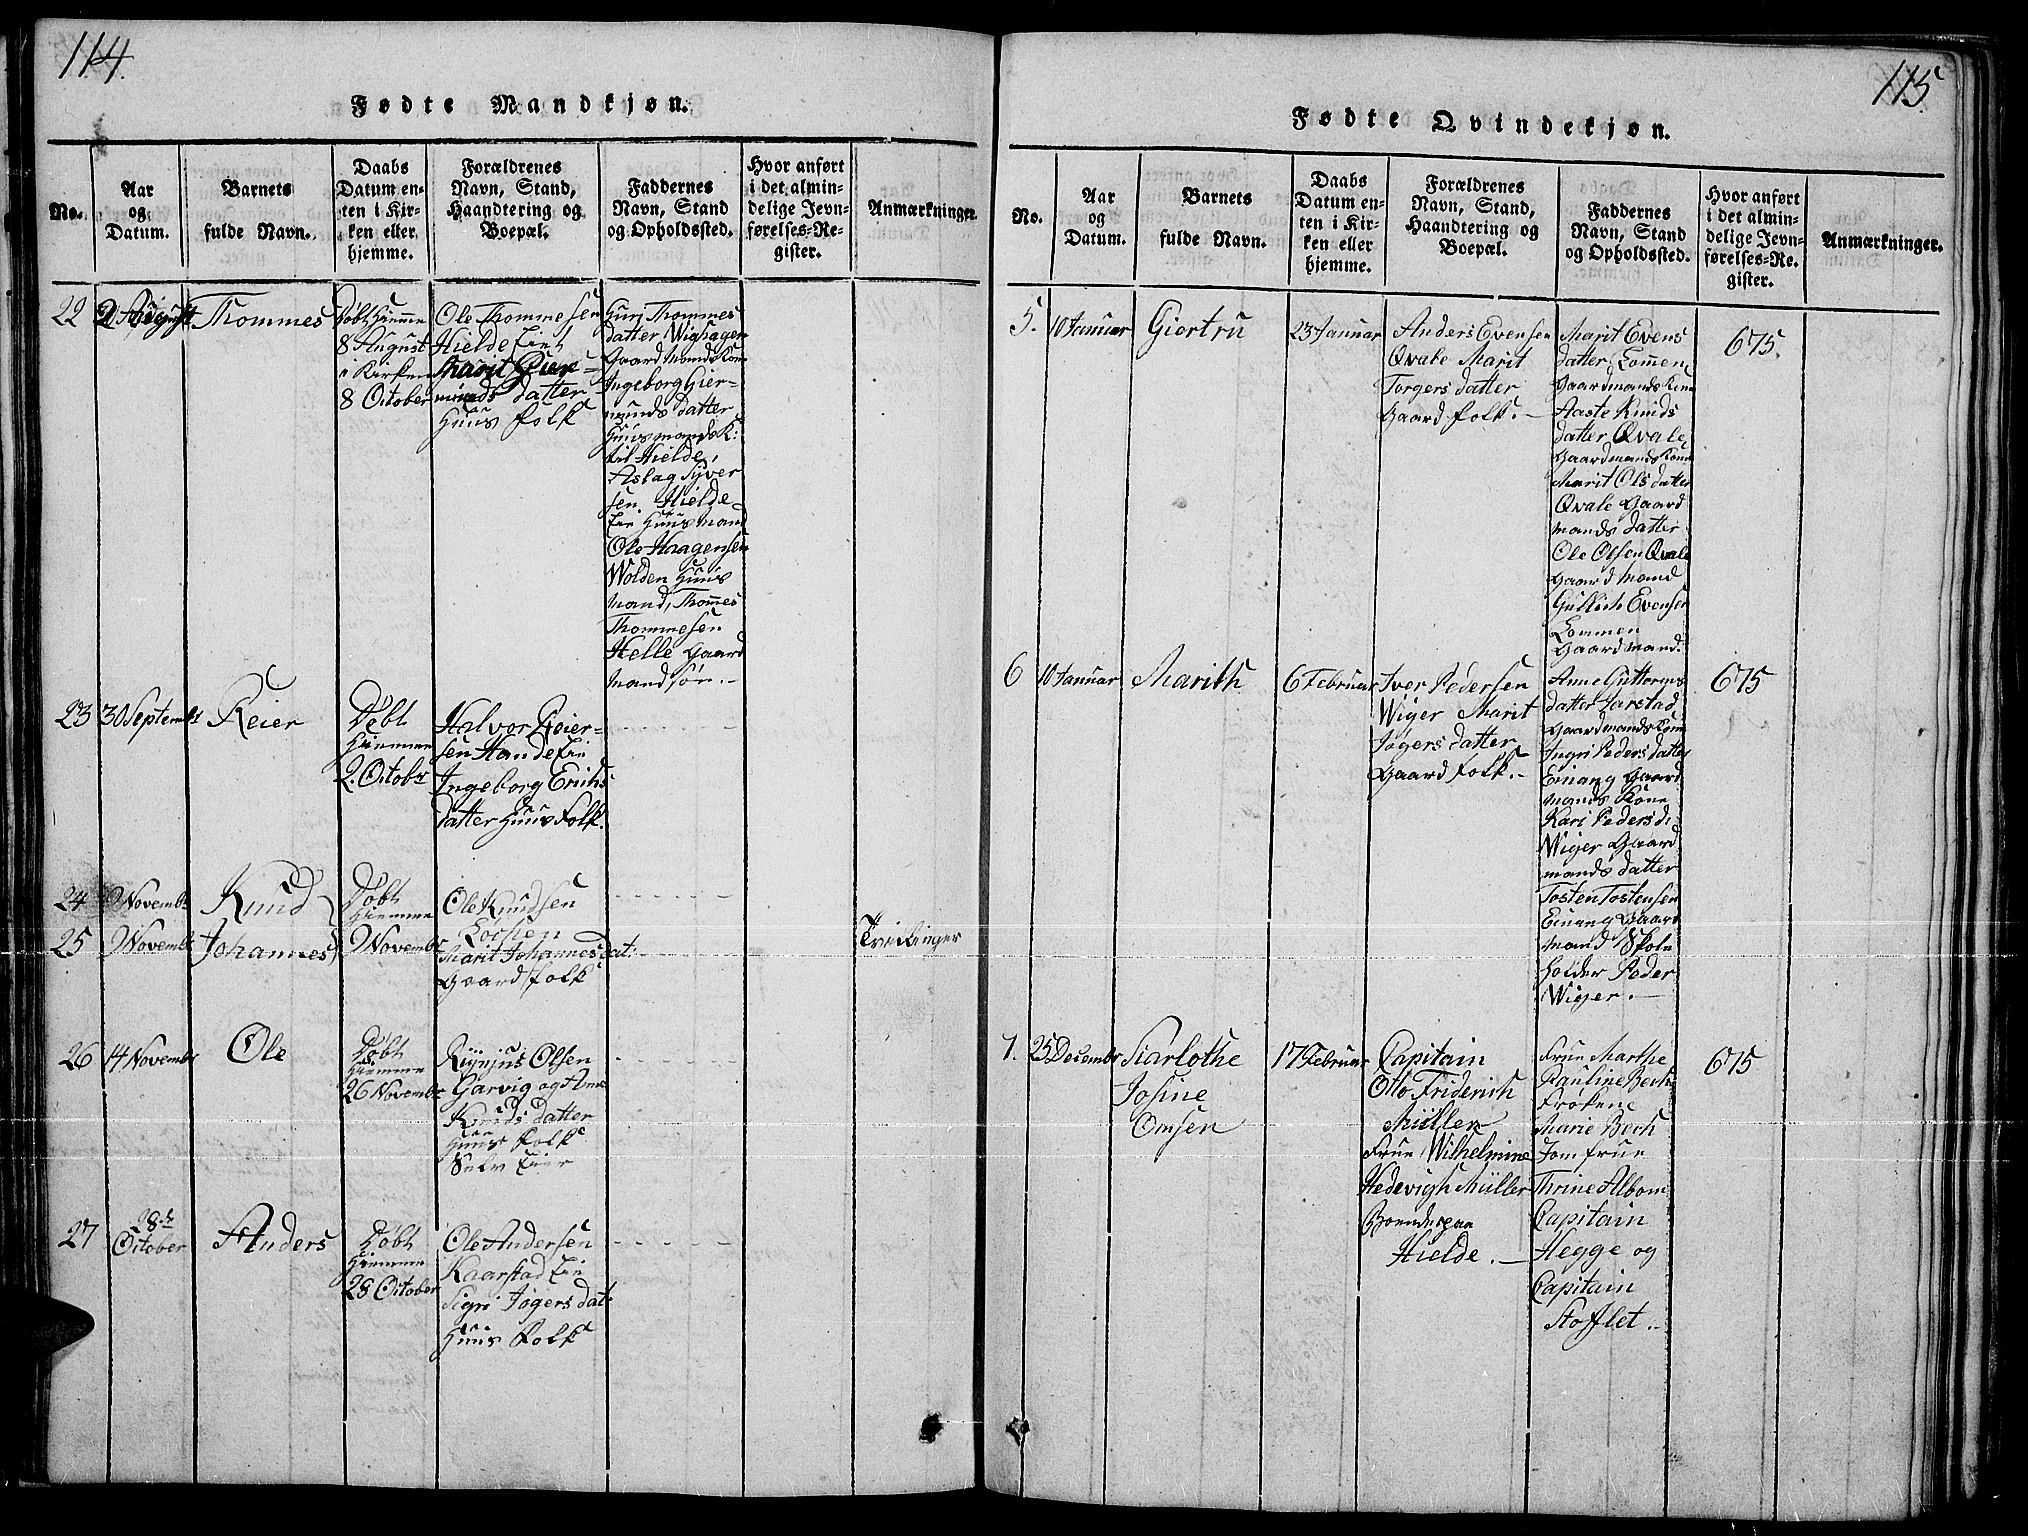 114.
Fødte Mandkjøn.
No.
Aar
og
Datum.
Barnets
fulde Navn.
Daabs
Datum en-
ten i Kir-
ken eller
hjemme.
Forældrenes
Navn, Stand,
Haandtering og
Boepæl.
Faddernes
Navn, Stand
og Opholdssted.
Hvor anført
i det almin-
delige Jevn-
førelses-Re-
gister.
Anmærkninger.
22
2 August
Thommes
Døbt Hiemme
8 August
i Kirken
8 October
Ole Thommesen
Hielde Eiet
Marit Gier-
munds datter
Huus folk
Guri Thommes
datter
Gaard mands Kone
Ingeborg Gier-
munds datter
Huusmands K:
til Hielde,
Aslag Syver
sen Hielde
Eie Huus mand
Ole Haagensen
Wolden Huus
mand, Thomes
Thommesen
Helle Gaard
mand søn.-
23
30 Septembr
Reier
Døbt
Hiemme
2. Octobr
Halvor Reier-
sen Hande Eie
Ingeborg Erichs
datter Huus Folk.
24
9 Novembr
Knud
Døbt
Hiemme
Ole Knudsen
25
9 Novembr
Johannes
9 Novembr
Marit Johannesdat:
Gaard folk
Tvillinger
26
14 Novembr
Ole
Døbt
Hiemme
26 Novembr
Olsen
Garvig og Ane
Knuds datter
Huus folk
Selv Eier
27
28-de
October
Anders
Døbt
Hiemme
28 October
Ole Andersen
Kaarstad Eie
Sigri Jøgers dat:
Huus Folk
115
Fødte Qvindekjøn.
No.
Aar
og
Datum.
Barnets
fulde Navn.
Daabs
Datum en-
ten i Kir-
ken eller
hjemme.
Forældrenes
Navn, Stand,
Haandtering og
Boepæl.
Faddernes
Navn, Stand
og Opholdssted.
Hvor anført
i det almin-
delige Jevn-
førelses-Re-
gister.
Anmærkninger.
5.
10 Januar
Giertru
23 Januar
Anders Evensen
Qvale Marit
Torgers datter
Gaard folk.-
Marit Evens
datter Lomen
Gaardmands Kone
Aaste Knuds
datter Qvale
Gaardmands Kone
Marit Ols datter
Qvale Gaard
mands datter
Ole Olsen Qvale
Gaard mand
Gullich Evensen
Lommen
Gaard mand.
675.
6
10 Januar
Marith
6 Februar
Iver Pedersen
Wiger Marit
Jøgers datter
Gaard folk.-
Anne Guttorms
datter Jarstad
Gaardmands Kone
Ingri Peders datter
Einang Gaard
mands Kone
Kari Peders d.
Wiger Gaard
mands datter
Tosten Tostensen
Einang Gaard
mand Skole
holder Peder
Wiger.-
675
7.
25 Desembr
Siarlothe
Josine
Omsen
17 Februar
Capitain
Otto Friderich
Müller
Frue Wilhelmine
Hedevigh Müller
Boende paa
Hielde.-
Frue Marthe
Pauline Berh
Frøken
Marie Berh
Jomfrue
Thrine Albom
Capitain
Hegge og
Capitain
Stofflet.-
675